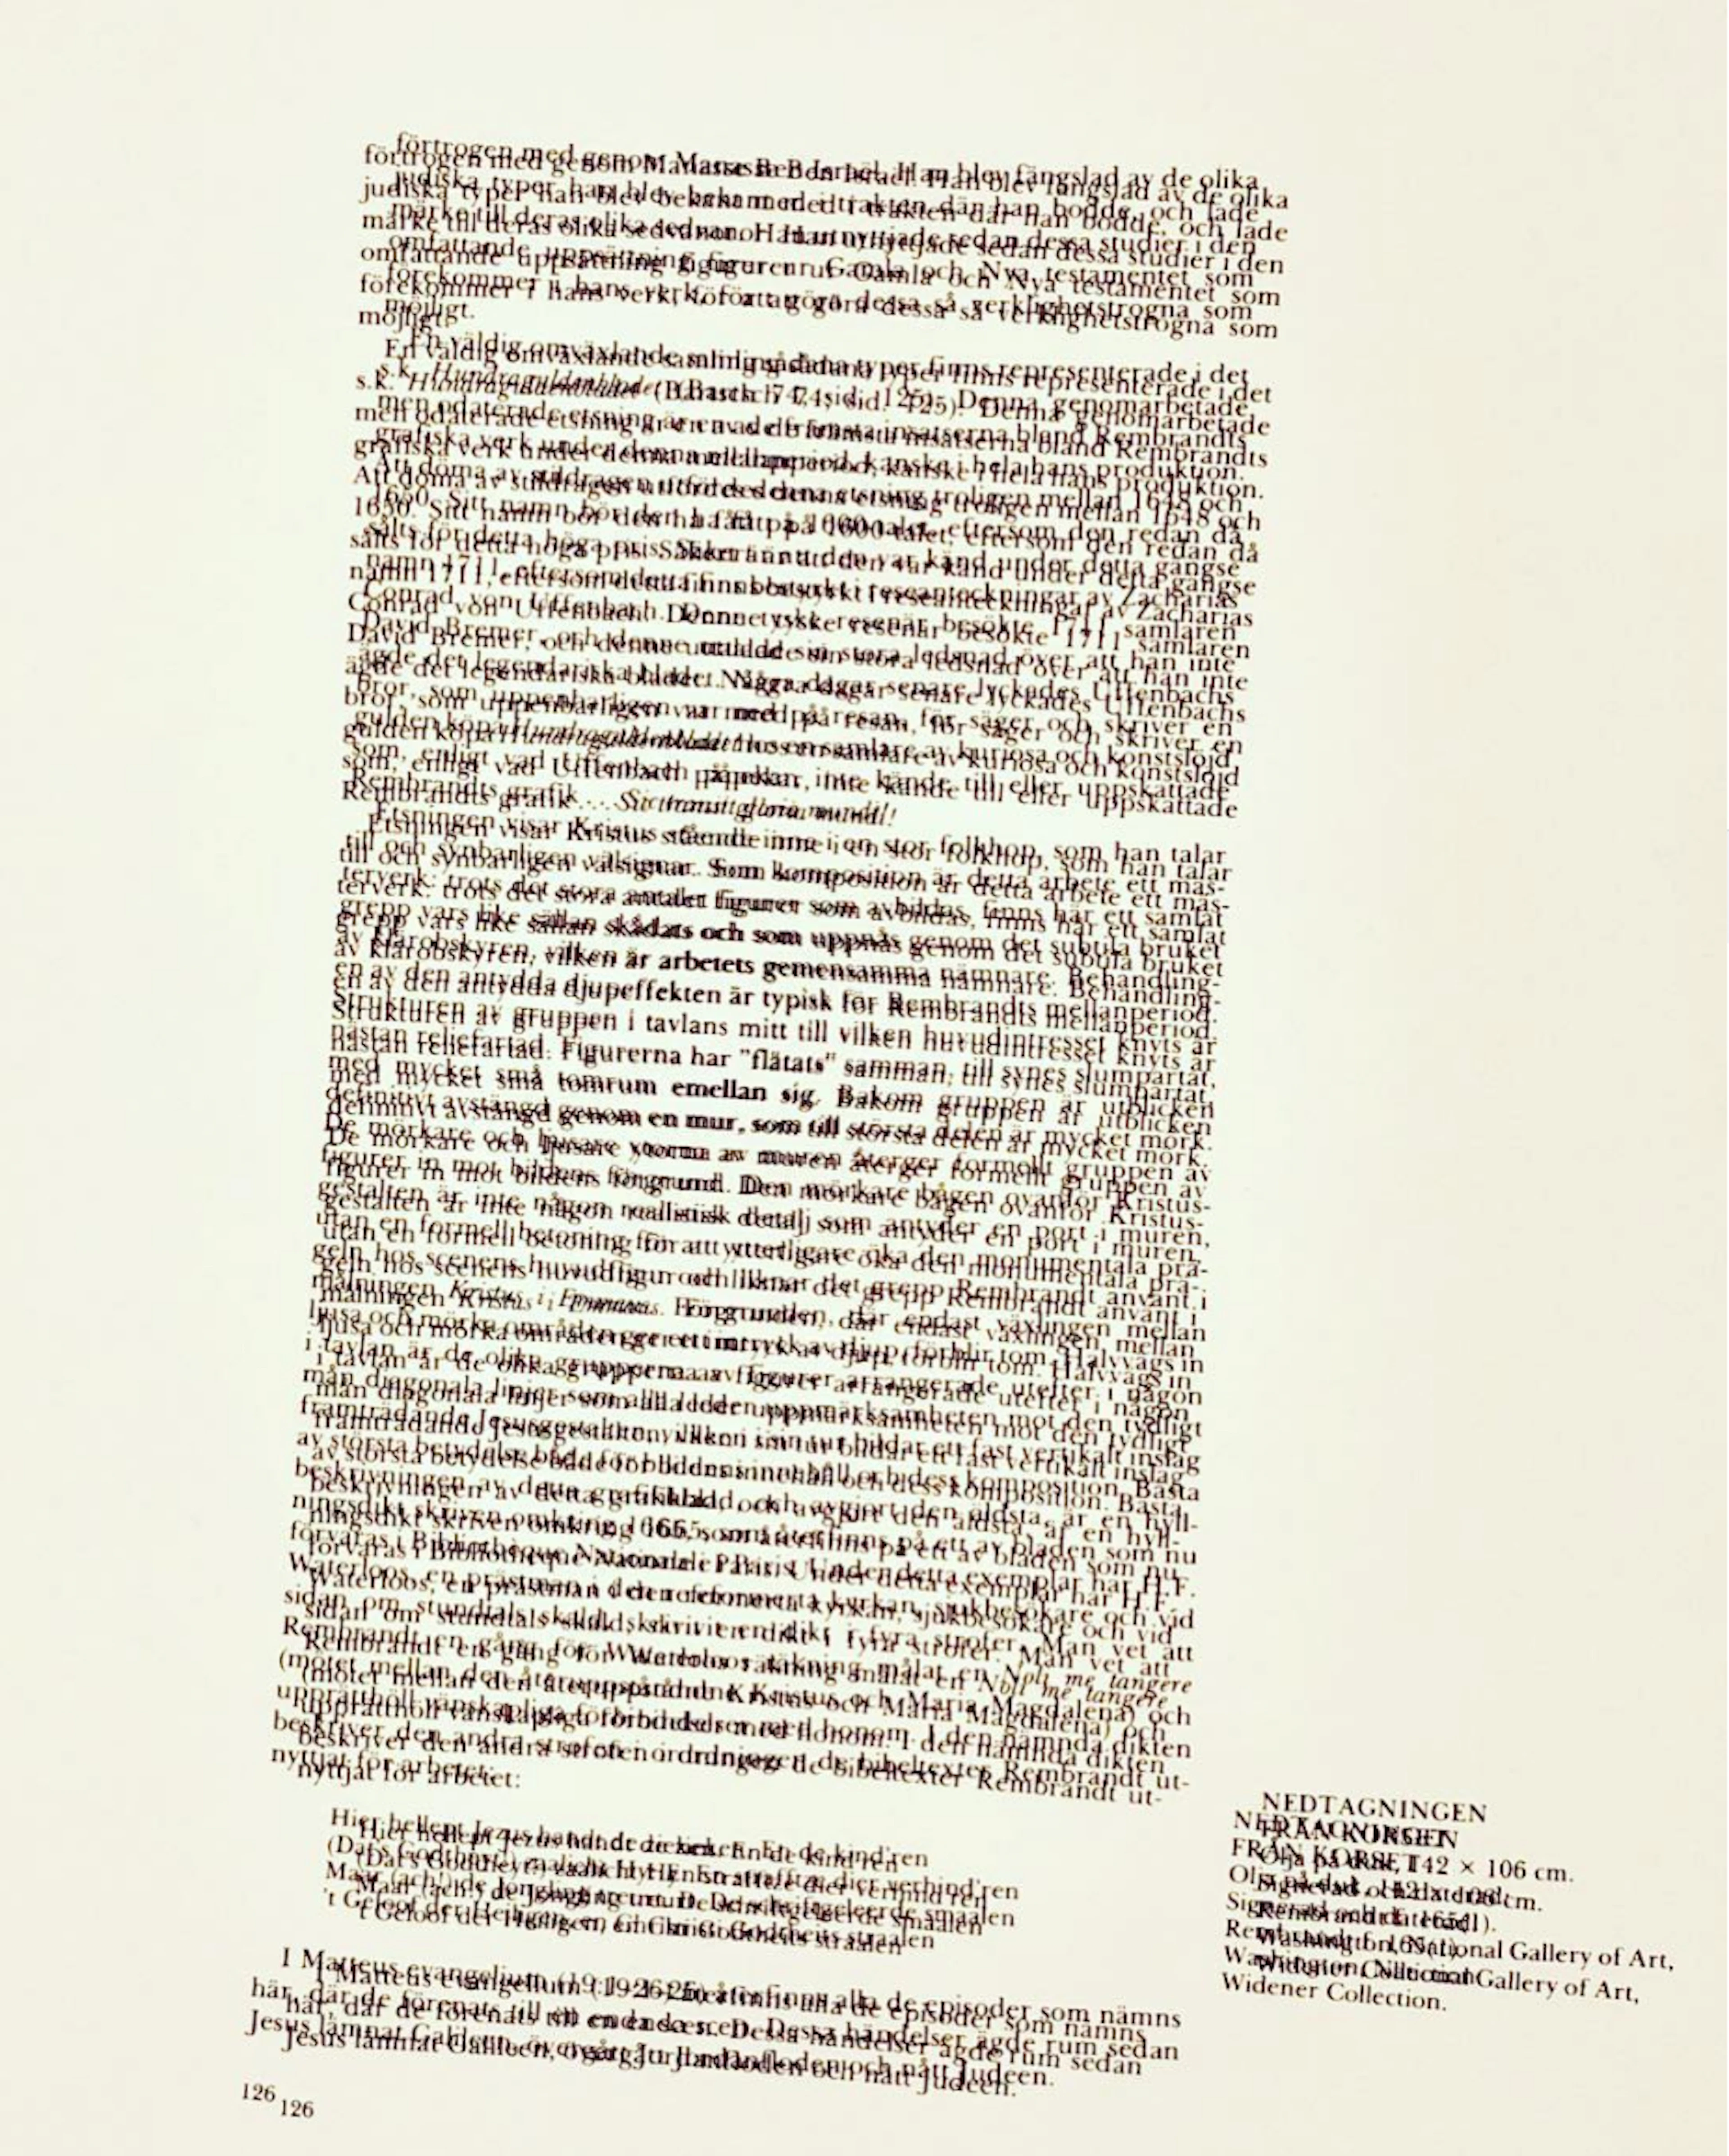 förtrogen med genom Manasse Ben Israel. Han blev fängslad av de olika
judiska typer han blev bekant med i trakten där han bodde, och lade
märke till deras olika sedvanor. Han utnyttjade sedan dessa studier i den
omfattande uppsättning figurer ur Gamla och Nya testamentet som
förekommer i hans verk, för att göra dessa så verklighetstrogna som
möjligt.
En väldig omväxlande samling sådana typer finns representerade i det
s.k. Hundraguldenbladet (Bartsch 74, sid. 125). Denna genomarbetade
men odaterade etsning är en av de främsta insatserna bland Rembrandts
grafiska verk under denna mellanperiod, kanske i hela hans produktion.
Att döma av stildragen utfördes denna etsning troligen mellan 1648 och
1650. Sitt namn bör den ha fått på 1600-talet, eftersom den redan då
sålts för detta höga pris. Säkert är att den var känd under detta gängse
namn 1711, eftersom detta finns bestyrkt i reseanteckningar av Zacharias
Conrad von Uffenbach. Denne tyske resenär besökte 1711 samlaren
David Bremer, och denne uttalade sin stora ledsnad över att han inte
ägde det legendariska bladet. Några dagar senare lyckades Uffenbachs
bror, som uppenbarligen var med på resan, för säger och skriver en
gulden köpa Hundraguldenbladet hos en samlare av kuriosa och konstslöjd
som, enligt vad Uffenbach påpekar, inte kände till eller uppskattade
Rembrandts grafik... Sic transit gloria mundi!
Etsningen visar Kristus stående inne i en stor folkhop, som han talar
till och synbarligen välsignar. Som komposition är detta arbete ett mäs-
terverk: trots det stora antalet figurer som avbildas, finns här ett samlat
grepp vars like sällan skådats och som uppnås genom det subtila bruket
av klärobskyren, vilken är arbetets gemensamma nämnare. Behandling-
en av den antydda djupeffekten är typisk för Rembrandts mellanperiod.
Strukturen av gruppen i tavlans mitt till vilken huvudintresset knyts är
nästan reliefartad. Figurerna har "flätats" samman, till synes slumpartat,
med mycket små tomrum emellan sig. Bakom gruppen är utblicken
definitivt avstängd genom en mur, som till största delen är mycket mörk.
De mörkare och ljusare ytorna av muren återger formellt gruppen av
figurer in mot bildens förgrund. Den mörkare bågen ovanför Kristus-
gestalten är inte någon realistisk detalj som antyder en port i muren,
utan en formell betoning för att ytterligare öka den monumentala prä-
geln hos scenens huvudfigur och liknar det grepp Rembrandt använt i
målningen Kristus i Emmaus. Förgrunden, där endast växlingen mellan
ljusa och mörka områden ger ett intryck av djup, förblir tom. Halvvägs in
i tavlan är de olika grupperna av figurer arrangerade utefter i någon
mån diagonala linjer som alla leder uppmärksamheten mot den tydligt
framträdande Jesusgestalten, vilken i sin tur bildar ett fast vertikalt inslag
av största betydelse både för bildens innehåll och dess komposition. Bästa
beskrivningen av detta grafikblad, och avgjort den äldsta, är en hyll-
ningsdikt skriven omkring 1665, som återfinns på ett av bladen som nu
förvaras i Bibliothèque Nationale i Paris. Under detta exemplar har H.F.
Waterloos, en prästman i den reformerta kyrkan, sjukbesökare och vid
sidan om stundtals skald, skrivit en dikt i fyra strofer. Man vet att
Rembrandt en gång för Waterloos räkning målat en Noli me tangere
(mötet mellan den återuppståndne Kristus och Maria Magdalena) och
upprätthöll vänskapliga förbindelser med honom. I den nämnda dikten
beskriver den andra strofen ordningen i de bibeltexter Rembrandt ut-
nyttjat för arbetet:
Hier hellept Jezus handt de zieken. En de kind'ren
(Dat's Godtheyt!) zaalicht Hy: En strafftze dier verhind'ren
Maar (ach!) de Jongling treurt. De schriftgeleerde smaalen
't Geloof der Heiligen, en Christi Godtheits straalen
I Matteus evangelium (19:1-26) återfinns alla de episoder som nämns
här, där de förenats till en enda scen. Dessa händelser ägde rum sedan
Jesus lämnat Galileen, övergått Jordanfloden och nått Judeen.
126
NEDTAGNINGEN
FRÅN KORSET
Olja på duk, 142 × 106 cm.
Signerad och daterad:
Rembrandt f. 165(1).
Washington, National Gallery of Art,
Widener Collection.